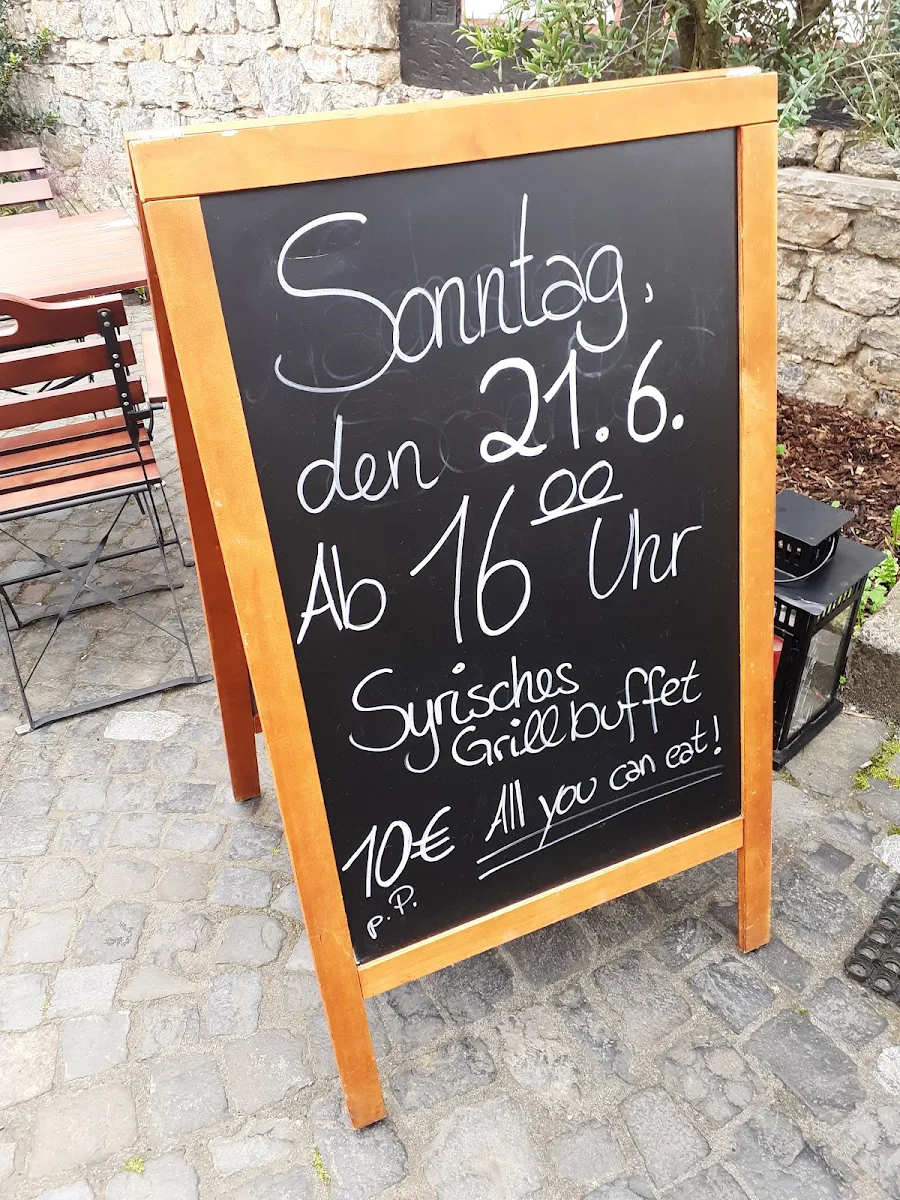 Sonntag,
den 21.6.
Ab 16⁰⁰ Uhr
Syrisches
Grillbuffet
10€ All you can eat!
p.P.